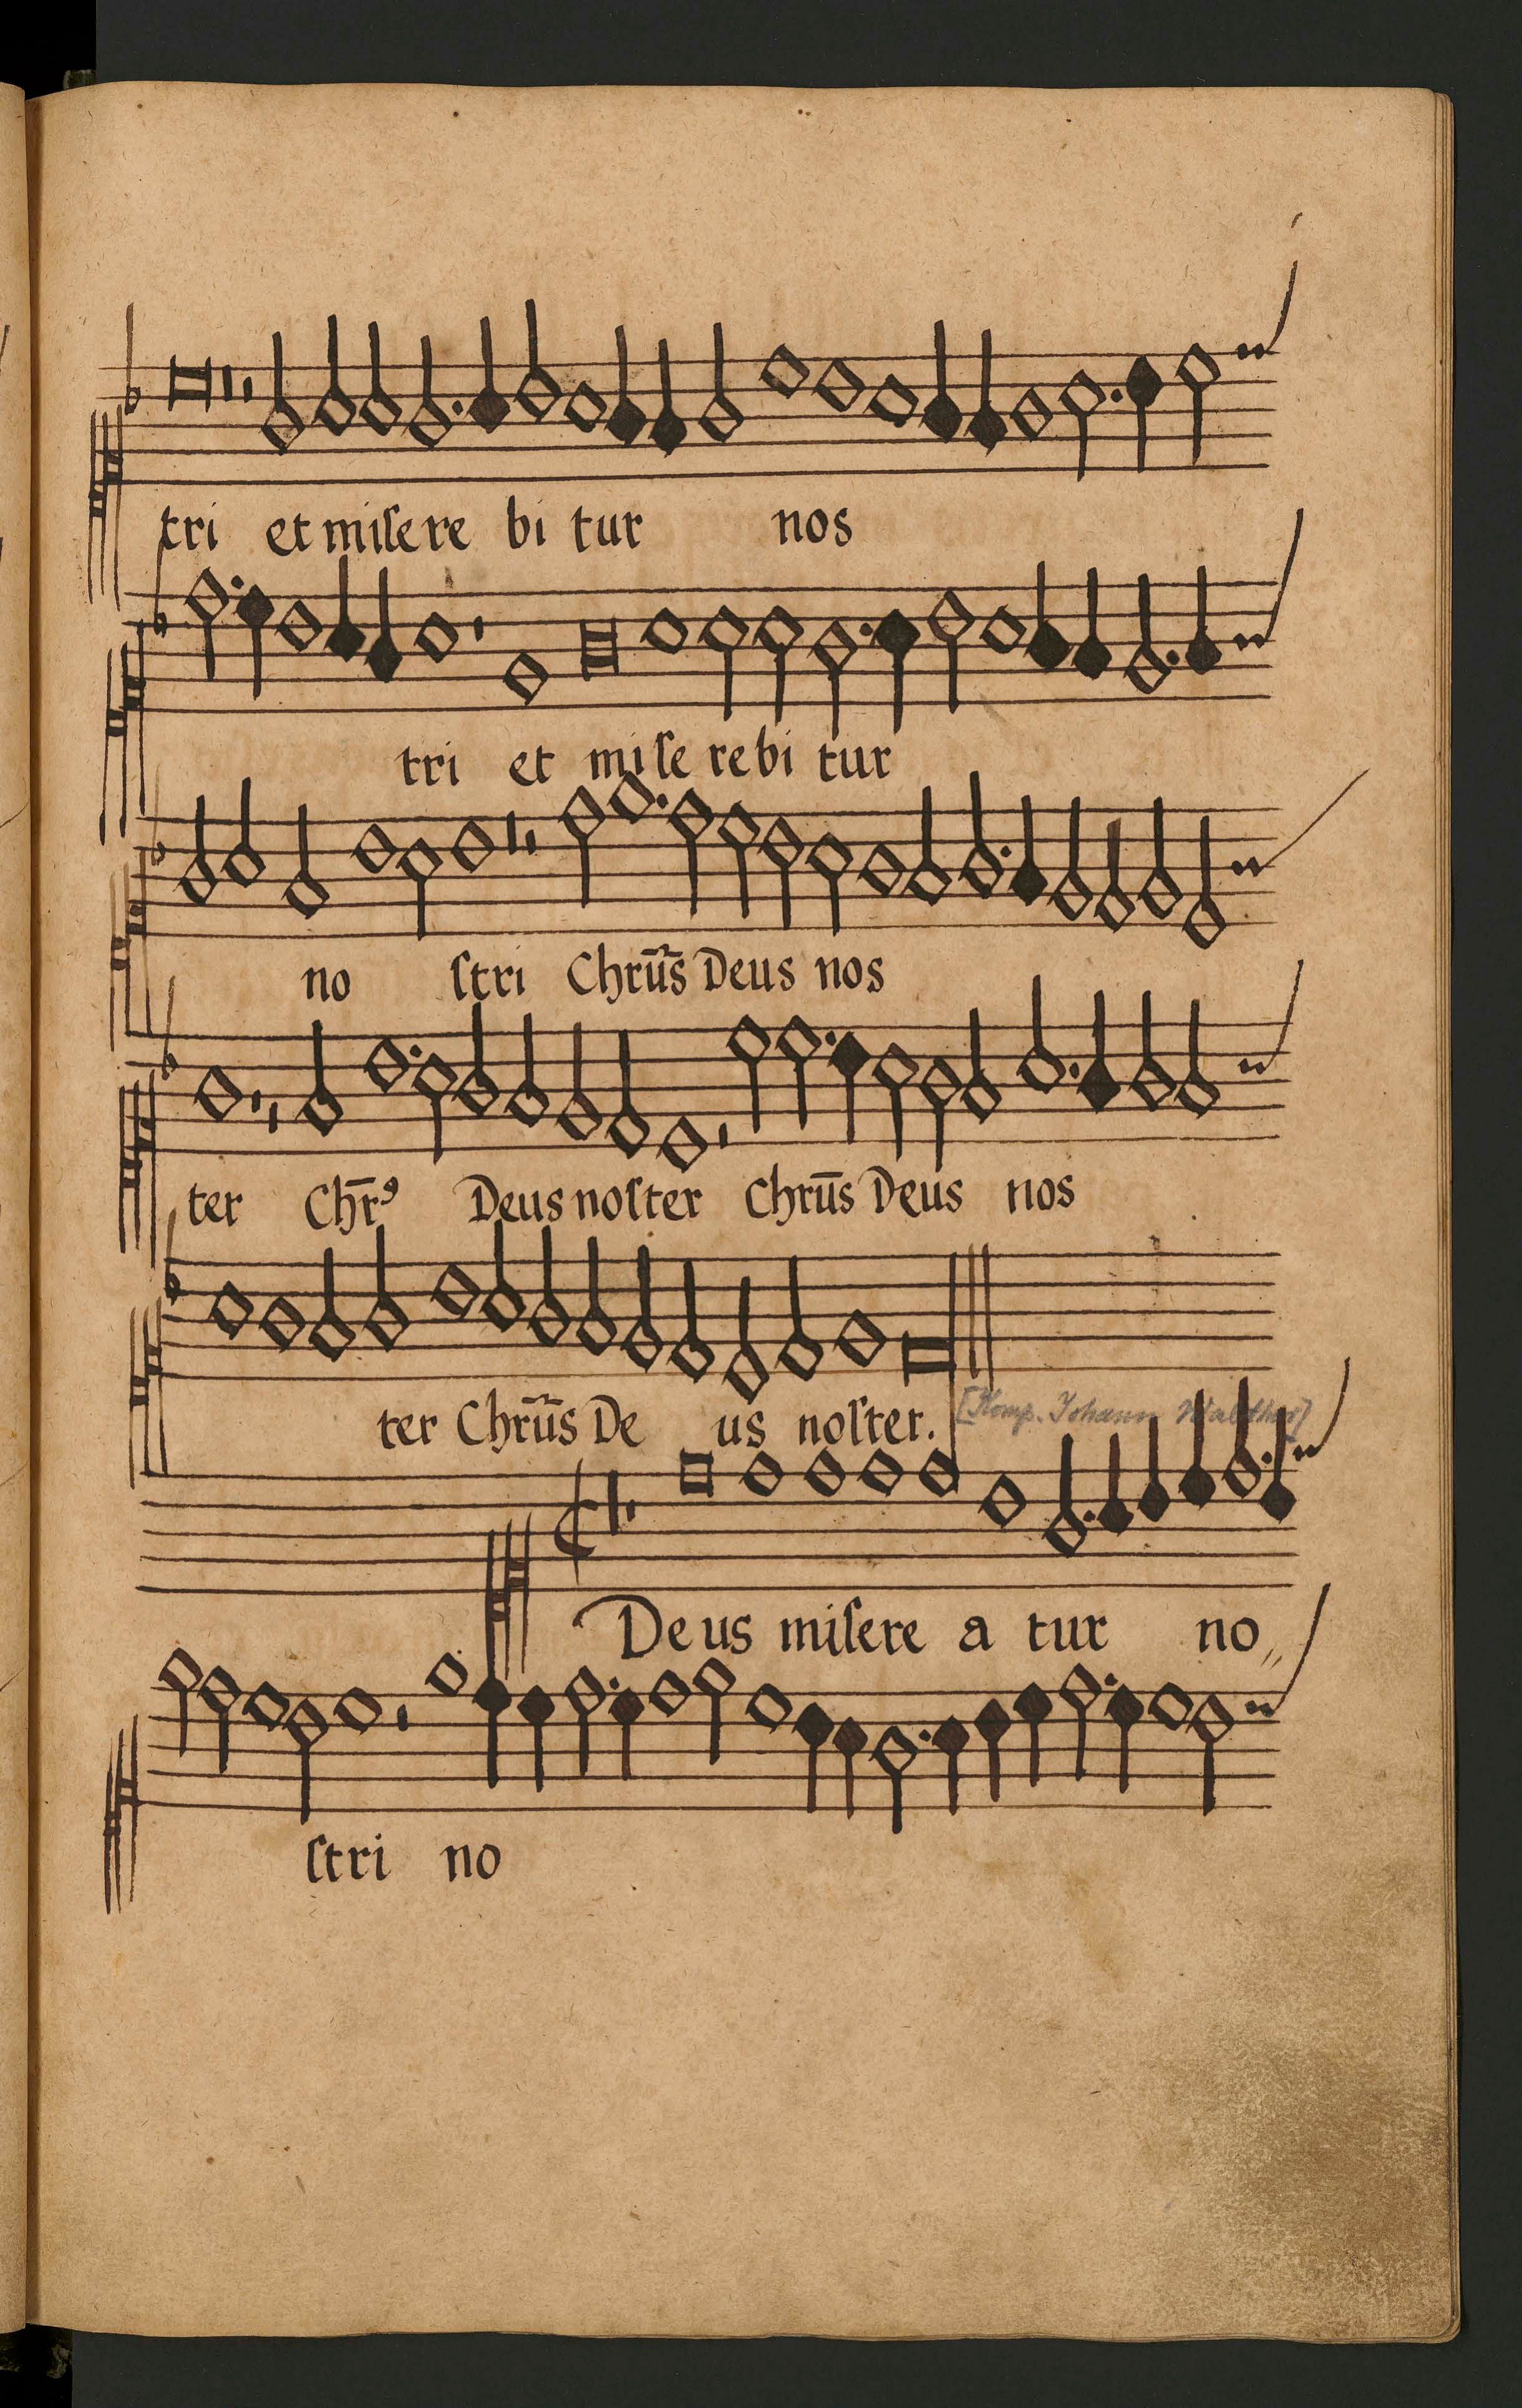 tri et miſere bi tur nos
tri et miſe rebi tur
no ſtri Chrũs Deus nos
ter Chr̄⁹ Deus noſter Chrūs Deus nos
ter Chrũs De us noſter.
[Komp. Johann Walther]
Deus miſere a tur no„
ſtri no